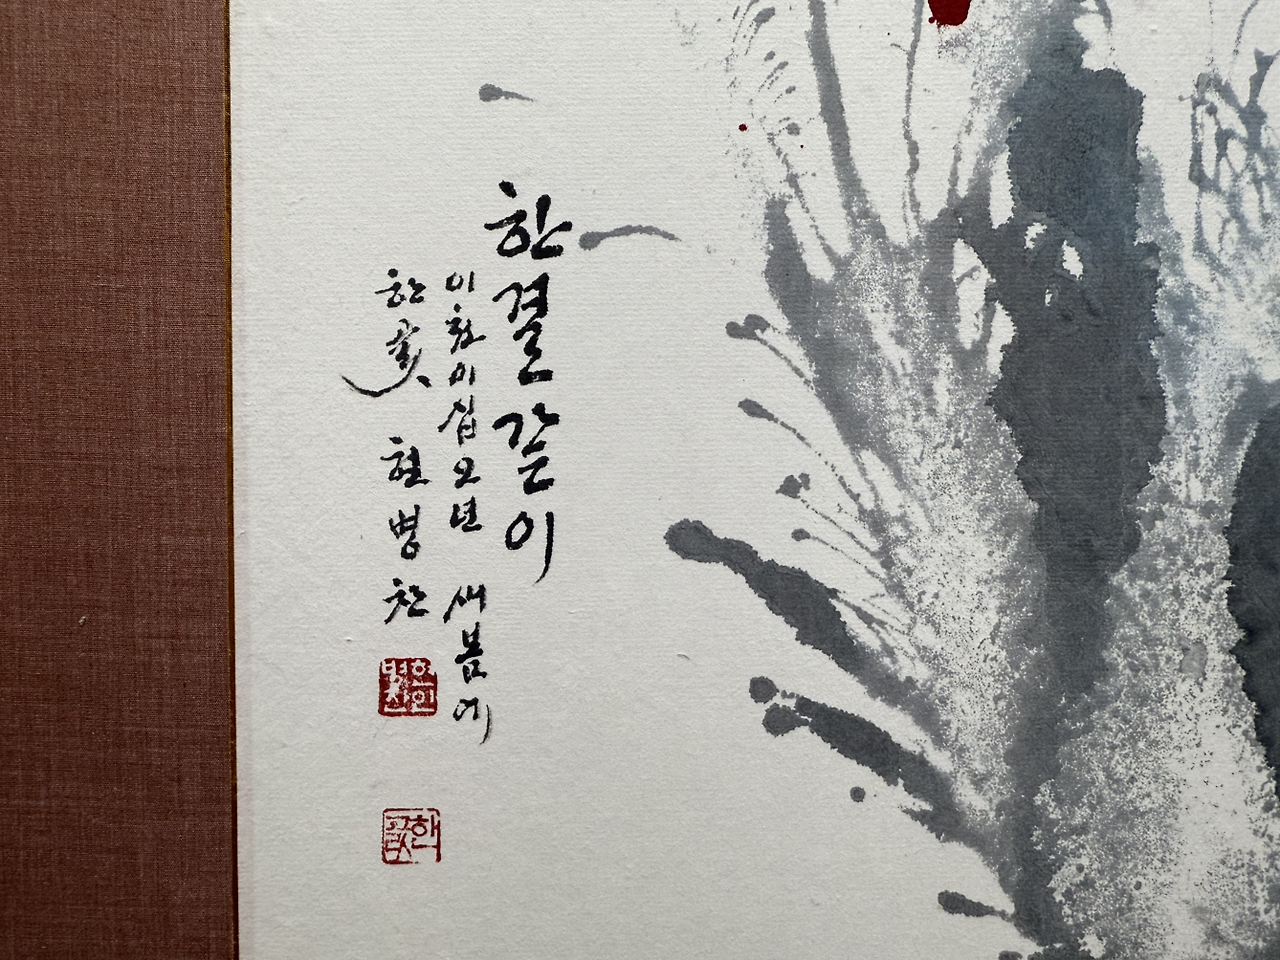 한결같이
이천이십오년 새봄에
한곬 현병찬